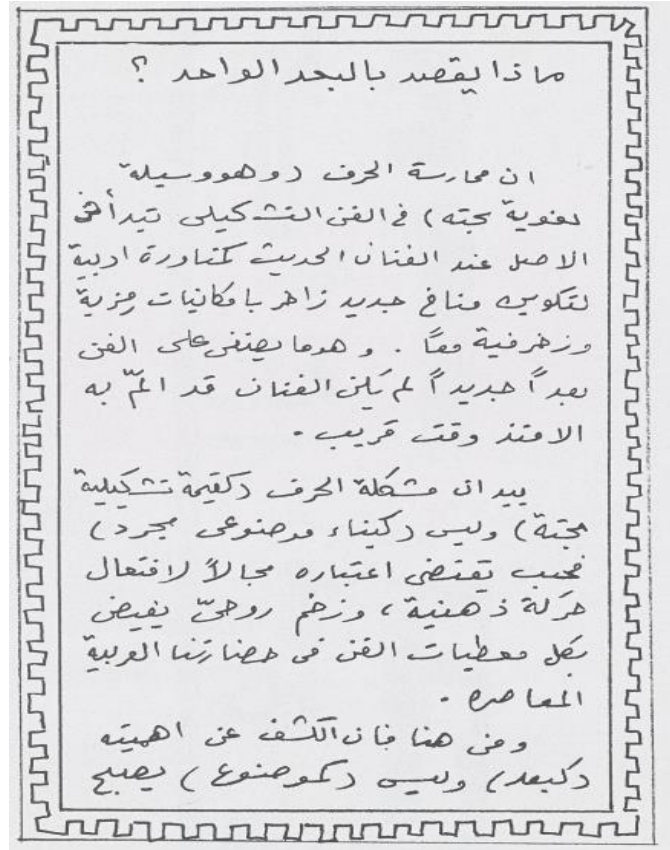 ماذا يقصد بالبعد الواحد ؟
ان ممارسة الحرف (وهو وسيلة
لغوية بحته) في الفن التشكيلي تبدأ في
الاصل عند الفنان الحديث كمناورة ادبية
لتكوين مناخ جديد زاخر بامكانيات رمزية
وزخرفية معاً . و هو ما يضفي على الفن
بعداً جديداً لم يكن الفنان قد المّ به
الا منذ وقت قريب .
بيد ان مشكلة الحرف (كقيمة تشكيلية
بحتة) وليس (كبناء موضوعي مجرد)
فحسب تقتضي اعتباره مجالاً لافتعال
حركة ذهنية ، وزخم روحيّ يفيض
بكل معطيات الفن في حضارتنا العربية
المعاصره .
ومن هنا فان الكشف عن اهميته
(كبعد) وليس (كموضوع) يصبح